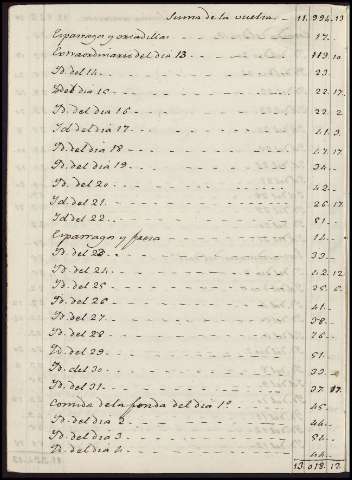 Suma de la vuelta 11.994.13
Esparragos y 17.
Extraordinario del dia 13 119.10
Yd. del 14 23.
Yd. del dia 15 22.17.
Yd. del dia 16 22.2
Yd. del dia 17 41.3.
Yd. del dia 18 47.17
Yd. del dia 19 34.
Yd. del 20 42.
Yd. del 21. 26.17.
Yd. del 22 51.
Esparragos y fresa 14.
Yd. del 23 33.
Yd. del 24 42.12
Yd. del 25 25.6.
Yd. del 26 41.
Yd. del 27 38.
Yd. del 28 76.
Yd. del 29 51.
Yd. del 30 33.
Yd. del 31 37.17.
Comida de la fonda del dia 1º 45.
Yd. del dia 2 44.
Yd. del dia 3 54.
Yd. del dia 4 44.
13.018.12.